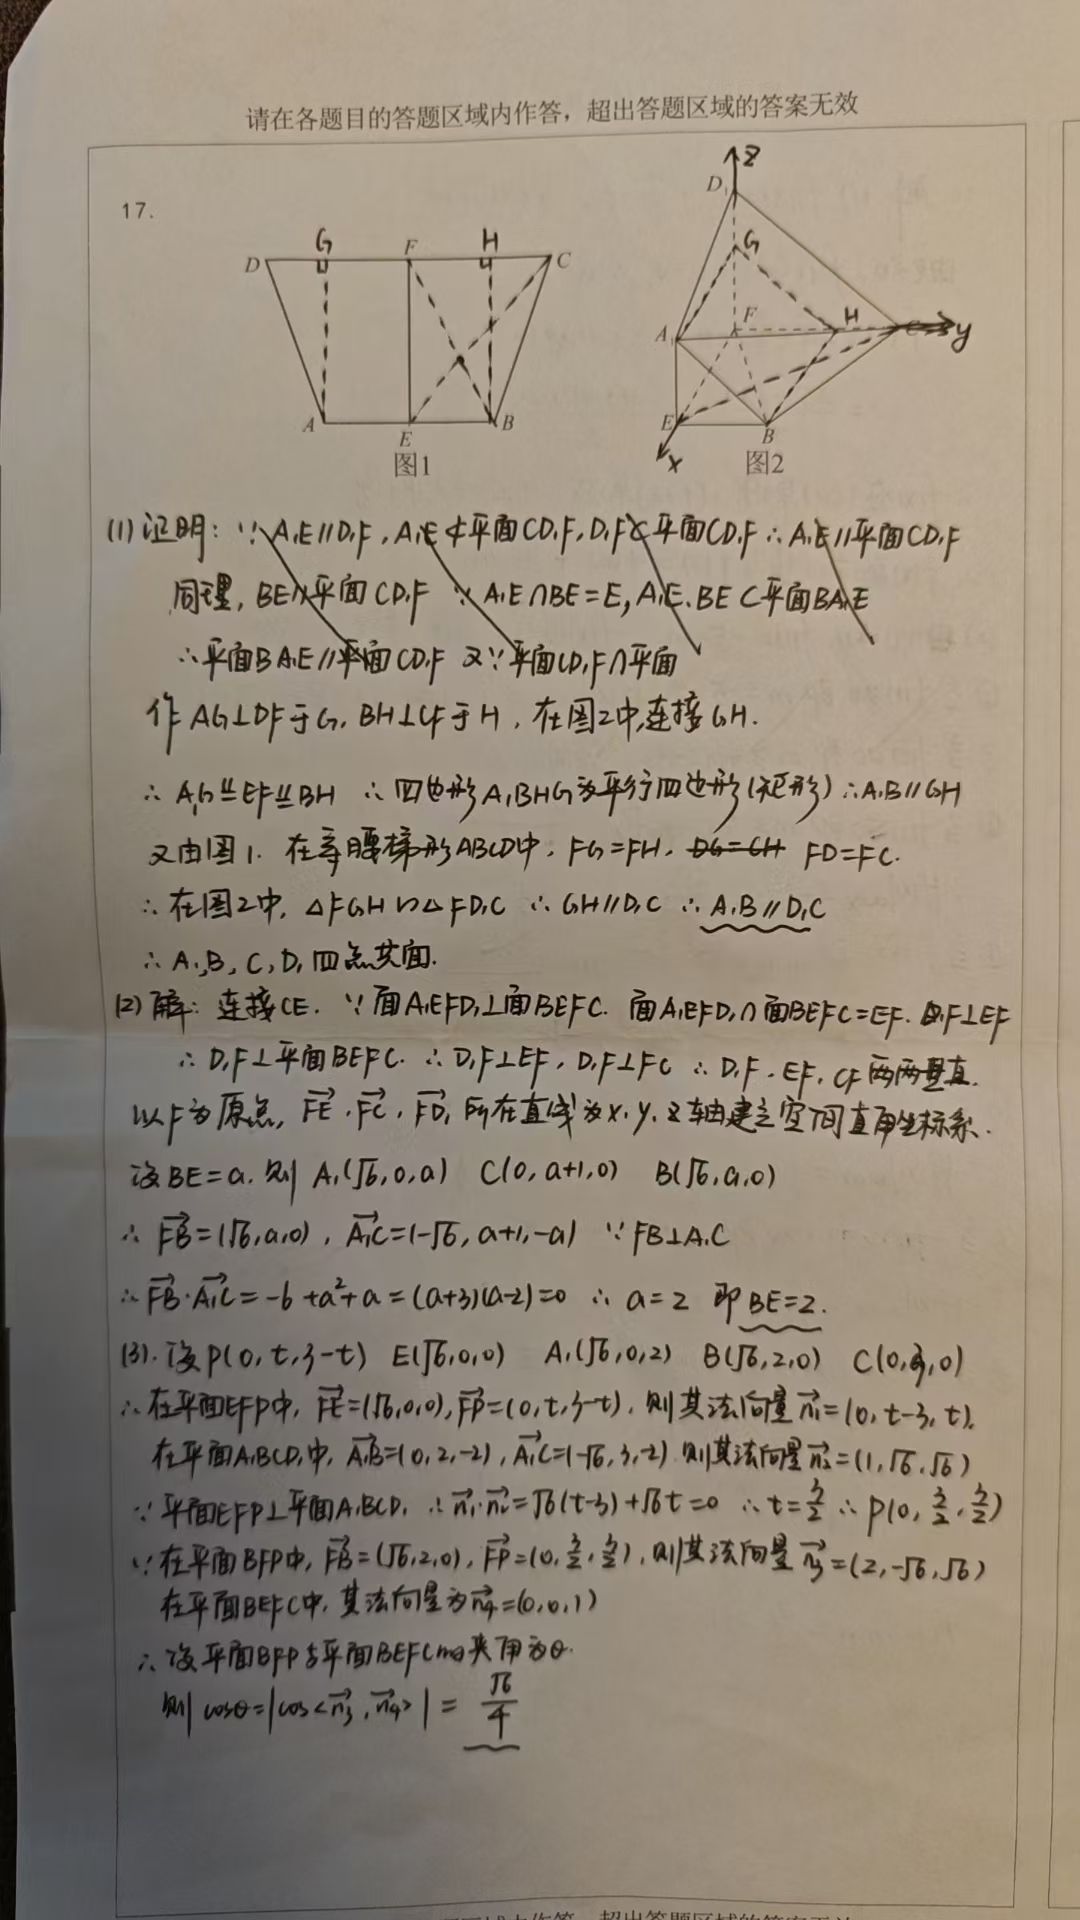 请在各题目的答题区域内作答，超出答题区域的答案无效
17.
D G F H C
A E B
图1
D₁ z
G
A₁ F H C y
E B
x
图2
(1) 证明：∵ A₁E∥D₁F，A₁E⊄平面CD₁F，D₁F⊂平面CD₁F ∴ A₁E∥平面CD₁F
同理，BE∥平面CD₁F ∵ A₁E∩BE=E，A₁E、BE⊂平面BA₁E
∴平面BA₁E∥平面CD₁F 又∵平面CD₁F∩平面
作AG⊥DF于G，BH⊥CF于H，在图2中，连接GH.
∴ A₁G≌EF≌BH ∴四边形A₁BHG为平行四边形(矩形) ∴A₁B∥GH
又由图1，在等腰梯形ABCD中，FG=FH，DG=CH FD=FC.
∴在图2中，△FGH∽△FD₁C ∴ GH∥D₁C ∴ A₁B∥D₁C
∴ A₁,B,C,D₁四点共面.
(2) 解：连接CE. ∵面A₁EFD₁⊥面BEFC. 面A₁EFD₁∩面BEFC=EF. D₁F⊥EF
∴ D₁F⊥平面BEFC. ∴ D₁F⊥EF，D₁F⊥FC ∴ D₁F、EF、CF两两垂直.
以F为原点，FE→，FC→，FD₁→所在直线为x,y,z轴建立空间直角坐标系.
设BE=a. 则 A₁(√6,0,a) C(0,a+1,0) B(√6,a,0)
∴ FB→=(√6,a,0)，A₁C→=(-√6,a+1,-a) ∵ FB⊥A₁C
∴ FB→·A₁C→=-6+a²+a=(a+3)(a-2)=0 ∴ a=2 即BE=2.
(3). 设P(0,t,3-t) E(√6,0,0) A₁(√6,0,2) B(√6,2,0) C(0,3,0)
∴在平面EFP中，FE→=(√6,0,0),FP→=(0,t,3-t)，则其法向量n₁→=(0,t-3,t).
在平面A₁BCD₁中，A₁B→=(0,2,-2)，A₁C→=(-√6,3,-2) 则其法向量n₂→=(1,√6,√6)
∵平面EFP⊥平面A₁BCD₁ ∴ n₁→·n₂→=√6(t-3)+√6t=0 ∴ t=3/2 ∴ P(0,3/2,3/2)
∵在平面BFP中，FB→=(√6,2,0)，FP→=(0,3/2,3/2)，则其法向量n₃→=(2,-√6,√6)
在平面BEFC中，其法向量为n₄→=(0,0,1)
∴设平面BFP与平面BEFC的夹角为θ.
则 cosθ=|cos<n₃→,n₄→>|=√6/4